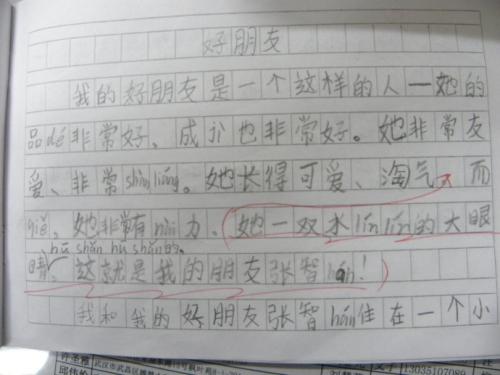 好朋友
我的好朋友是一个这样的人—她的
品dé非常好。成jì也非常好。她非常友
爱、非常shànliáng。她长得可爱、淘气，而
qiě，她非常有nài力，她一双水līnlīn的大眼
hū shǎn hū shǎn的。
睛，这就是我的朋友张智hán！
我和我的好朋友张智hán住在一个小
13035107089